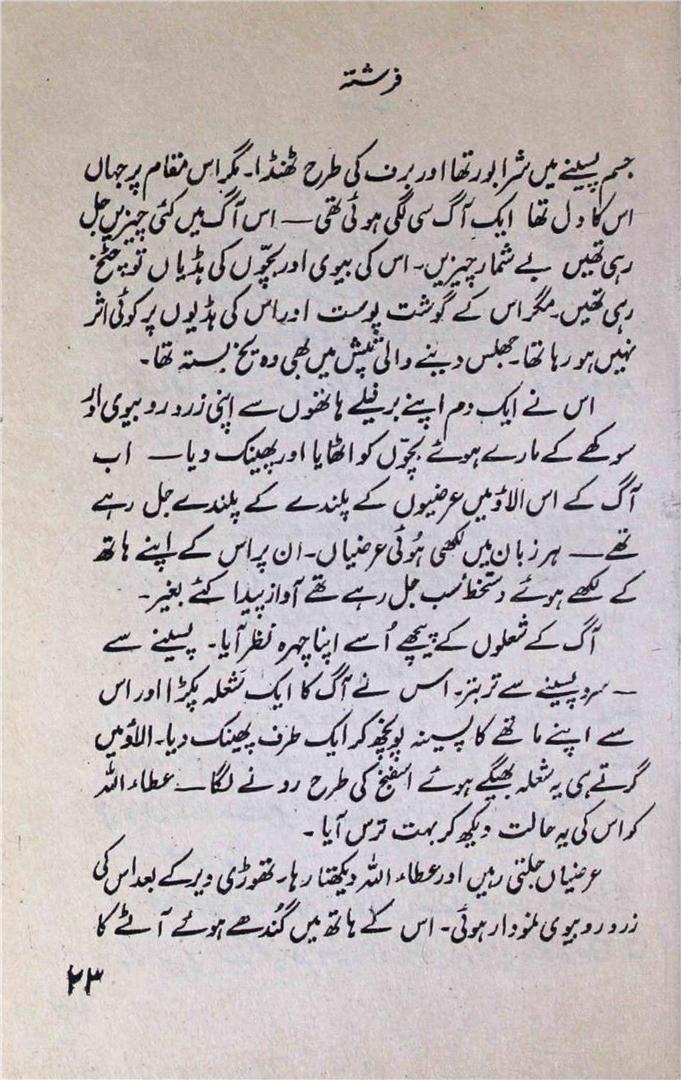 فرشتہ
جسم پسینے میں شرابور تھا اور برف کی طرح ٹھنڈا۔ مگر اس مقام پر جہاں
اس کا دل تھا ایک آگ سی لگی ہوئی تھی — اس آگ میں کئی چیزیں جل
رہی تھیں بے شمار چیزیں۔ اس کی بیوی اور بچّوں کی ہڈیاں تو چٹخ
رہی تھیں۔ مگر اس کے گوشت پوست اور اس کی ہڈیوں پر کوئی اثر
نہیں ہو رہا تھا۔ جھلس دینے والی تپش میں بھی وہ یخ بستہ تھا۔
اس نے ایک دم اپنے برفیلے ہاتھوں سے اپنی زرد رو بیوی اور
سوکھے کے مارے ہوئے بچّوں کو اٹھایا اور پھینک دیا — اب
آگ کے اس الاؤ میں عرضیوں کے پلندے کے پلندے جل رہے
تھے — ہر زبان میں لکھی ہُوئی عرضیاں۔ ان پر اس کے اپنے ہاتھ
کے لکھے ہوئے دستخط سب جل رہے تھے آواز پیدا کئے بغیر۔
آگ کے شعلوں کے پیچھے اُسے اپنا چہرہ نظر آیا۔ پسینے سے
— سرد پسینے سے تر بتر۔ اس نے آگ کا ایک شعلہ پکڑا اور اس
سے اپنے ماتھے کا پسینہ پونچھ کر ایک طرف پھینک دیا۔ الاؤ میں
گرتے ہی یہ شعلہ بھیگے ہوئے اسفنج کی طرح رونے لگا — عطاء اللہ
کو اس کی یہ حالت دیکھ کر بہت ترس آیا۔
عرضیاں جلتی رہیں اور عطاء اللہ دیکھتا رہا۔ تھوڑی دیر کے بعد اس کی
زرد رو بیوی نمودار ہوئی۔ اس کے ہاتھ میں گُندھے ہوئے آٹے کا
۲۳